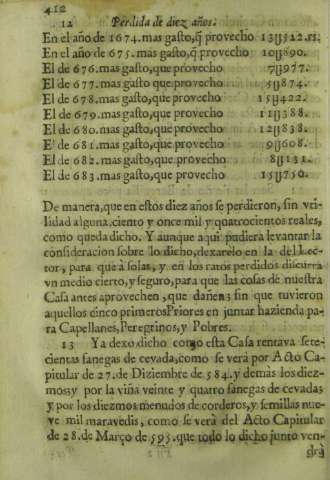 412
12 Perdida de diez años.
En el año de 1674. mas gasto, q̃ provecho 13U522.rs.
En el año de 675. mas gasto, que provecho 10U890.
El de 676. mas gasto, que provecho 7U977.
El de 677. mas gasto, que provecho 5U874.
El de 678. mas gasto, que provecho 15U422.
El de 679. mas gasto, que provecho 11U388.
El de 680. mas gasto, que provecho 12U838.
El de 681. mas gasto, que provecho 9U608.
El de 682. mas gasto, que provecho 8U131.
El de 683. mas gasto, que provecho 15U750.
De manera, que en estos diez años se perdieron, sin vti-
lidad alguna, ciento y once mil y quatrocientos reales,
como queda dicho. Y aunque aqui pudiera levantar la
consideracion sobre lo dicho, dexarelo en la del Lec-
tor, para que à solas, y en los ratos perdidos discurra
vn medio cierto, y seguro, para que las cosas de nuestra
Casa antes aprovechen, que dañen; sin que tuvieron
aquellos cinco primeros Priores en juntar hazienda pa-
ra Capellanes, Peregrinos, y Pobres.
13 Ya dexo dicho como esta Casa rentava sete-
cientas fanegas de cevada, como se verà por Acto Ca-
pitular de 27. de Diziembre de 584. y demàs los diez-
mos; y por la viña veinte y quatro fanegas de cevada;
y por los diezmos menudos de corderos, y semillas nue-
ve mil maravedis, como se verà del Acto Capitular
de 28. de Março de 593. que todo lo dicho junto ven-